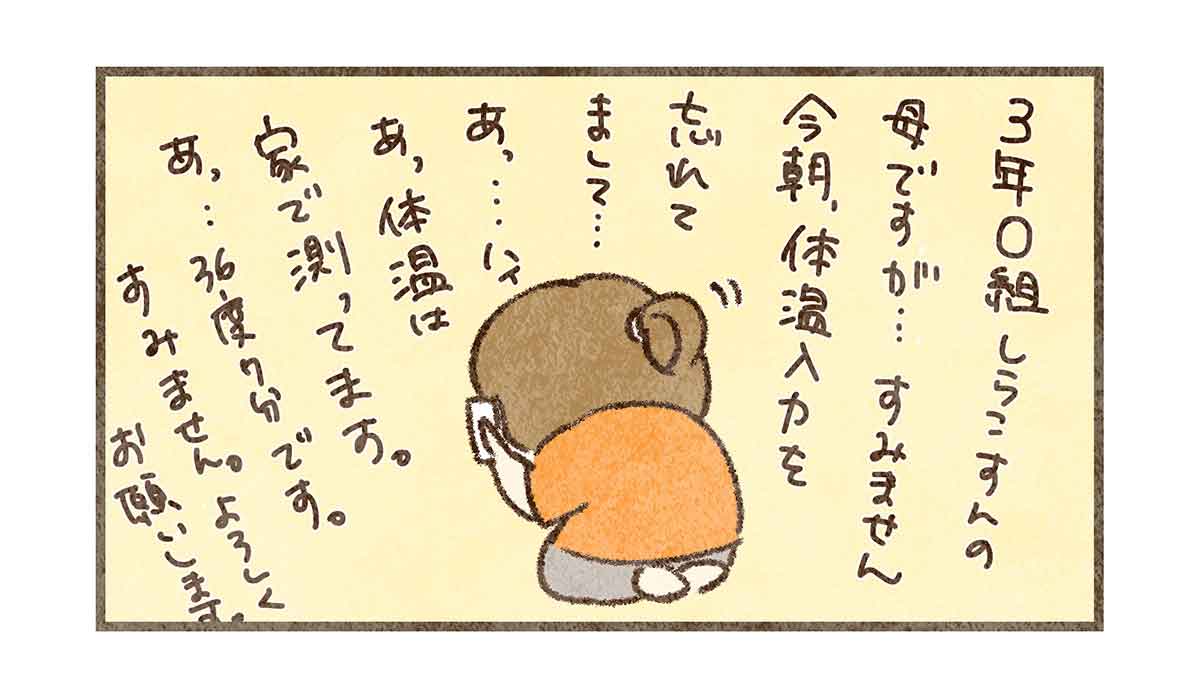 3年〇組しらこすんの
母ですが…すみません
今朝、体温入力を
忘れて
まして…
あっ……ハイ
あ、体温は
家で測ってます。
あっ…36度7分です。
すみません。よろしく
お願いします。